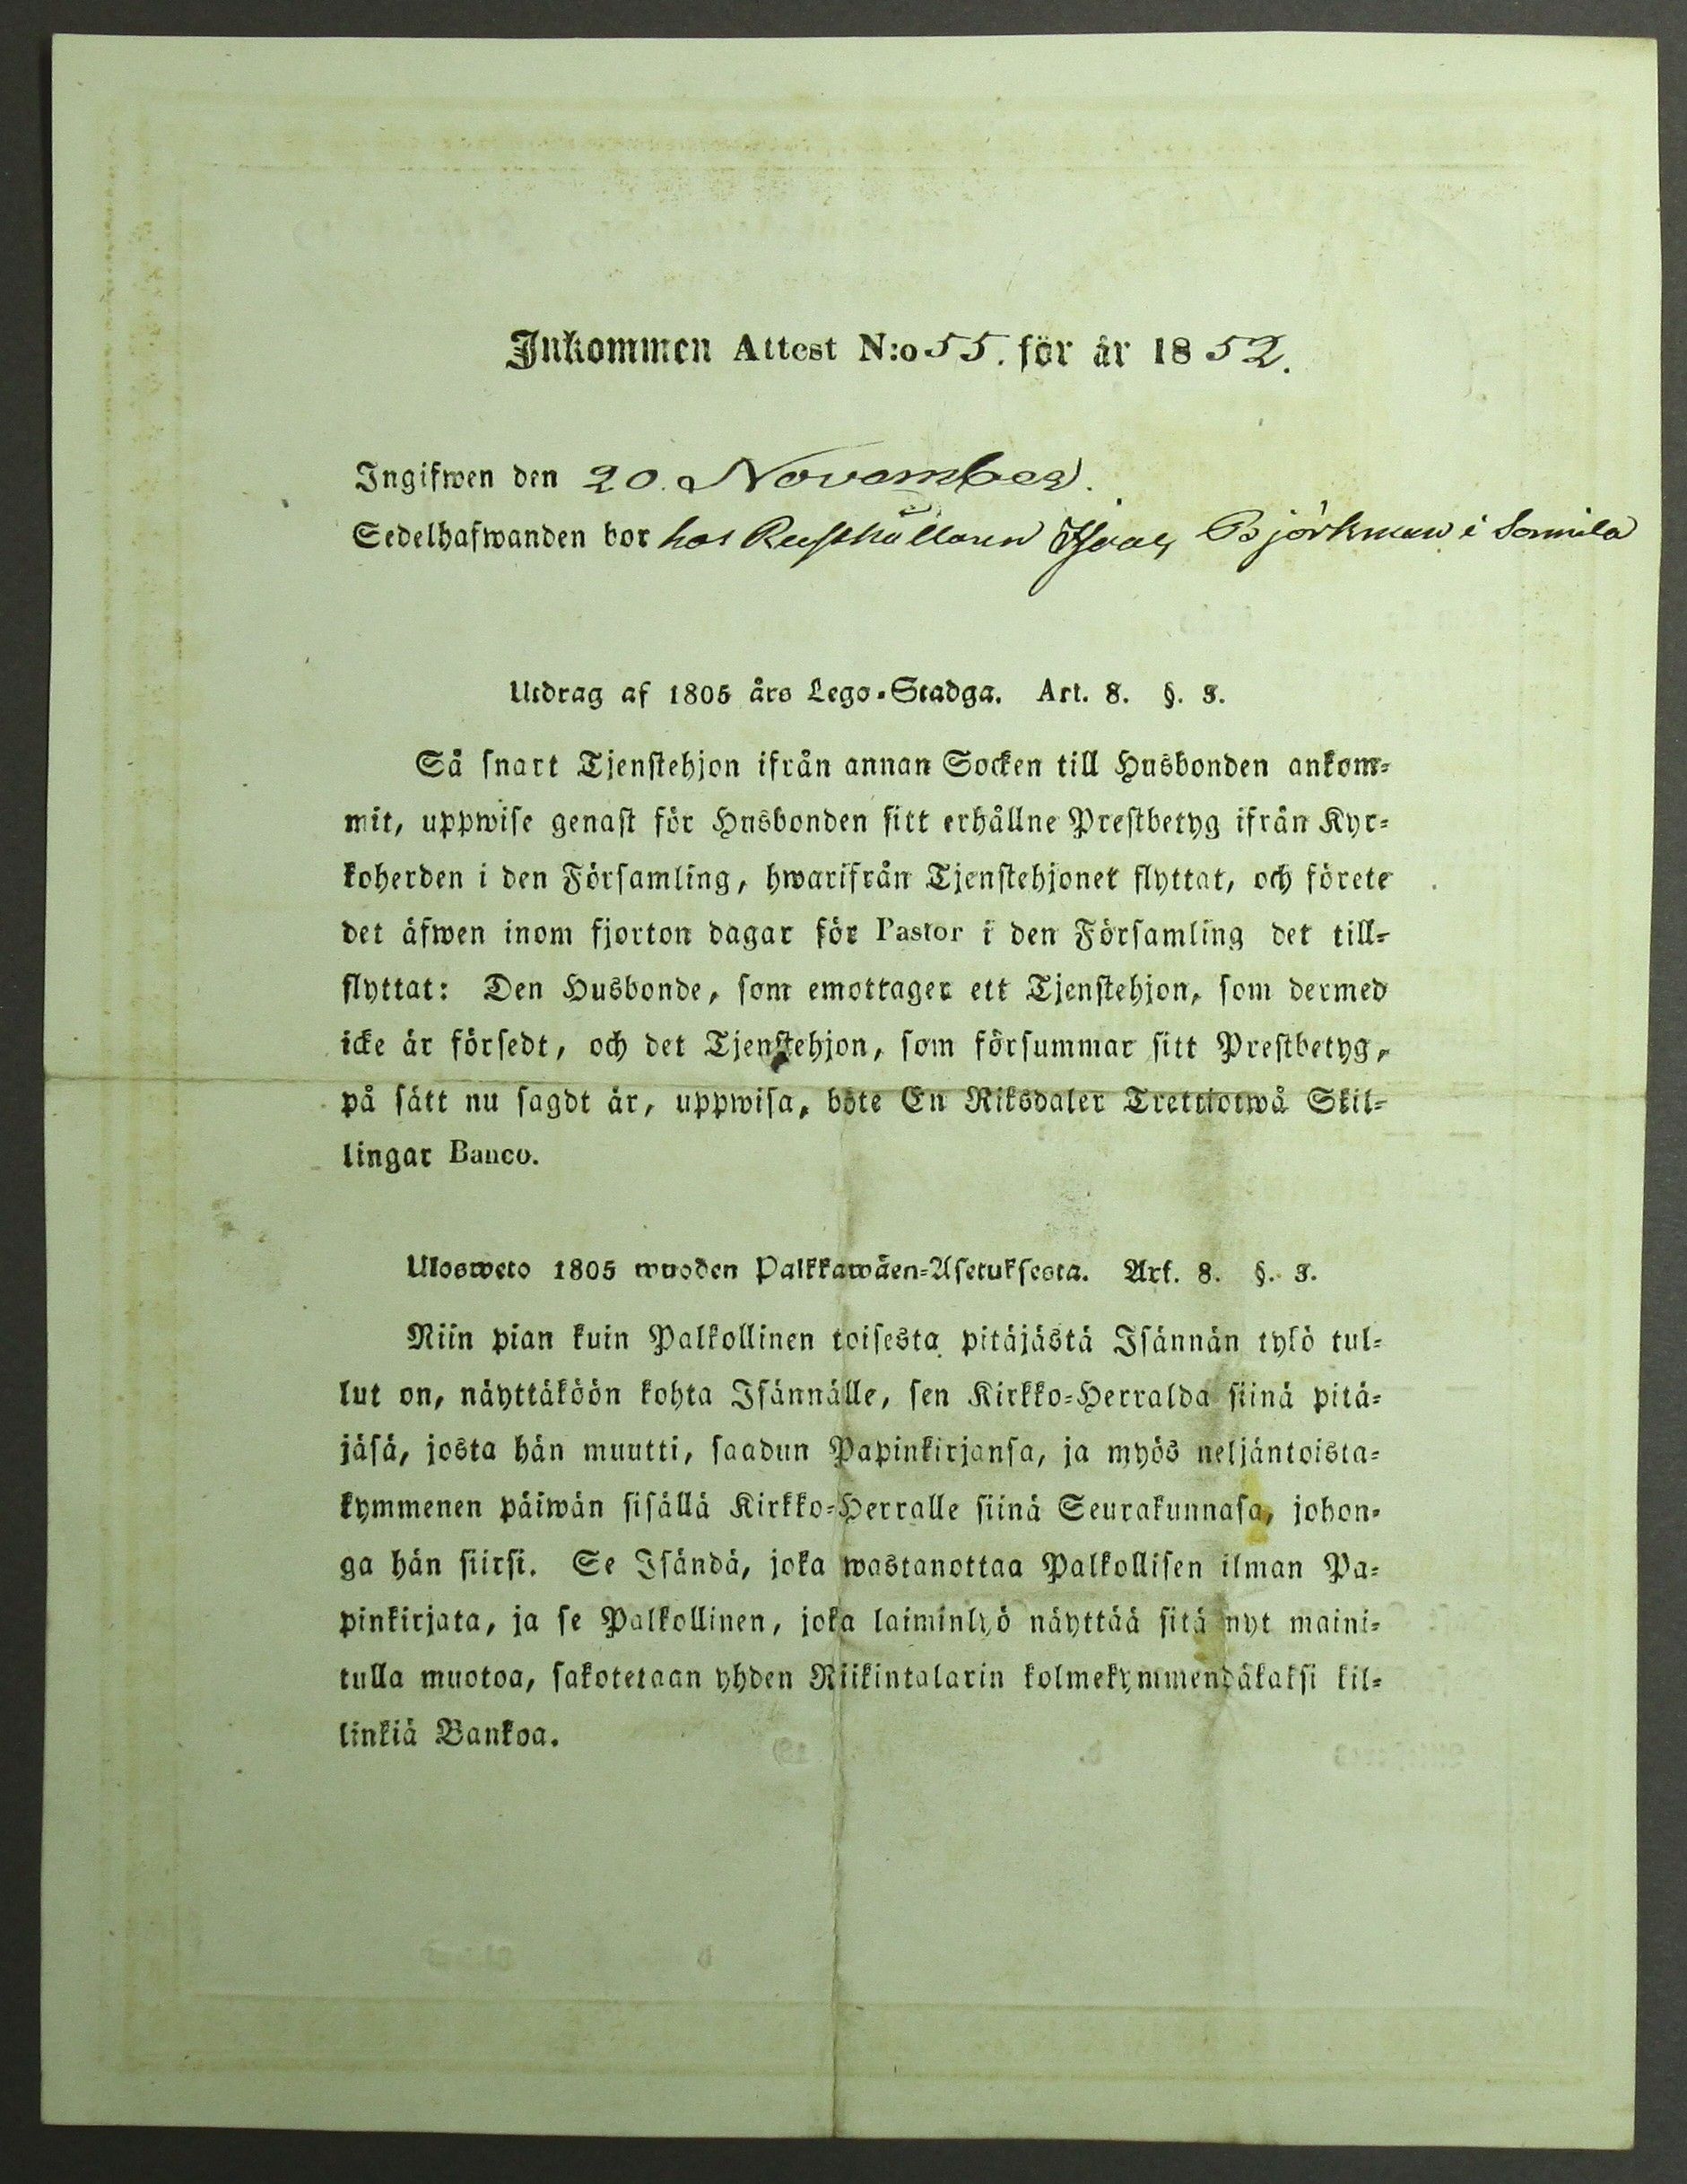 Inkommen Attest N:o 55. för år 1852.
Ingifwen den 20. November.
Sedelhafwanden bor hos Rusthållaren Isaac Björkman i Somila
Utdrag af 1805 års Lego-Stadga. Art. 8. §. 3.
Så snart Tjenstehjon ifrån annan Socken till Husbonden ankom-
mit, uppwise genast för Husbonden sitt erhållne Prestbetyg ifrån Kyr-
koherden i den Församling, hwarifrån Tjenstehjonet flyttat, och förete
det äfwen inom fjorton dagar för Pastor i den Församling det till-
flyttat: Den Husbonde, som emottager ett Tjenstehjon, som dermed
icke är försedt, och det Tjenstehjon, som försummar sitt Prestbetyg,
på sätt nu sagdt är, uppwisa, böte En Riksdaler Trettiotwå Skil-
lingar Banco.
Ulosweto 1805 wuoden Palkkawäen-Asetuksesta. Art. 8. §. 3.
Niin pian kuin Palkollinen toisesta pitäjästä Isännän tykö tul-
lut on, näyttäköön kohta Isännälle, sen Kirkko-Herralda siinä pitä-
jäsä, josta hän muutti, saadun Papinkirjansa, ja myös neljäntoista-
kymmenen päiwän sisällä Kirkko-Herralle siinä Seurakunnasa, johon-
ga hän siirsi. Se Isändä, joka wastanottaa Palkollisen ilman Pa-
pinkirjata, ja se Palkollinen, joka laiminlyö näyttää sitä nyt maini-
tulla muotoa, sakotetaan yhden Riikintalarin kolmekymmendäkaksi kil-
linkiä Bankoa.